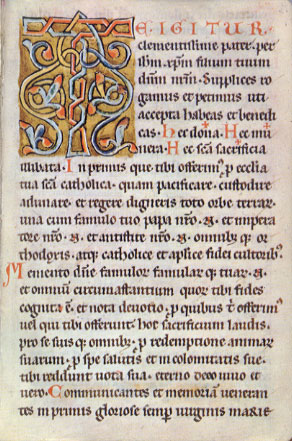 TE IGITUR
clementissime pater. per
ihm xpm filium tuum
dnm nrm. Supplices ro
gamus et petimus uti
accepta habeas et benedi
cas. hec dona. hec mu
nera. hec sca sacrificia
illibata. In primis que tibi offerim' p ecclia
tua sca catholica. quam pacificare. custodire
adunare. et regere digneris toto orbe terrar
una cum famulo tuo papa nro. N. et impera
tore nro. N. et antistite nro. N. omnib; q; or
thodoxis. atq; catholice et aplice fidei cultorib;
Memento dne famulor famular q; tuar. N.
et omniu circumastantium quor tibi fides
cognita e. et nota devotio. p quibus t offerim'
vel qui tibi offerunt hoc sacrificium laudis.
pro se suis q; omnib;. p redemptione animar
suarum. p spe salutis et incolomitatis sue.
tibi reddunt vota sua. eterno deo vivo et
vero. Communicantes et memoriam veneran
tes in primis gloriose semp virginis marie